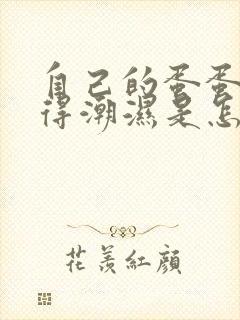 自己的蛋蛋
得潮濕是怎
花羨紅顔